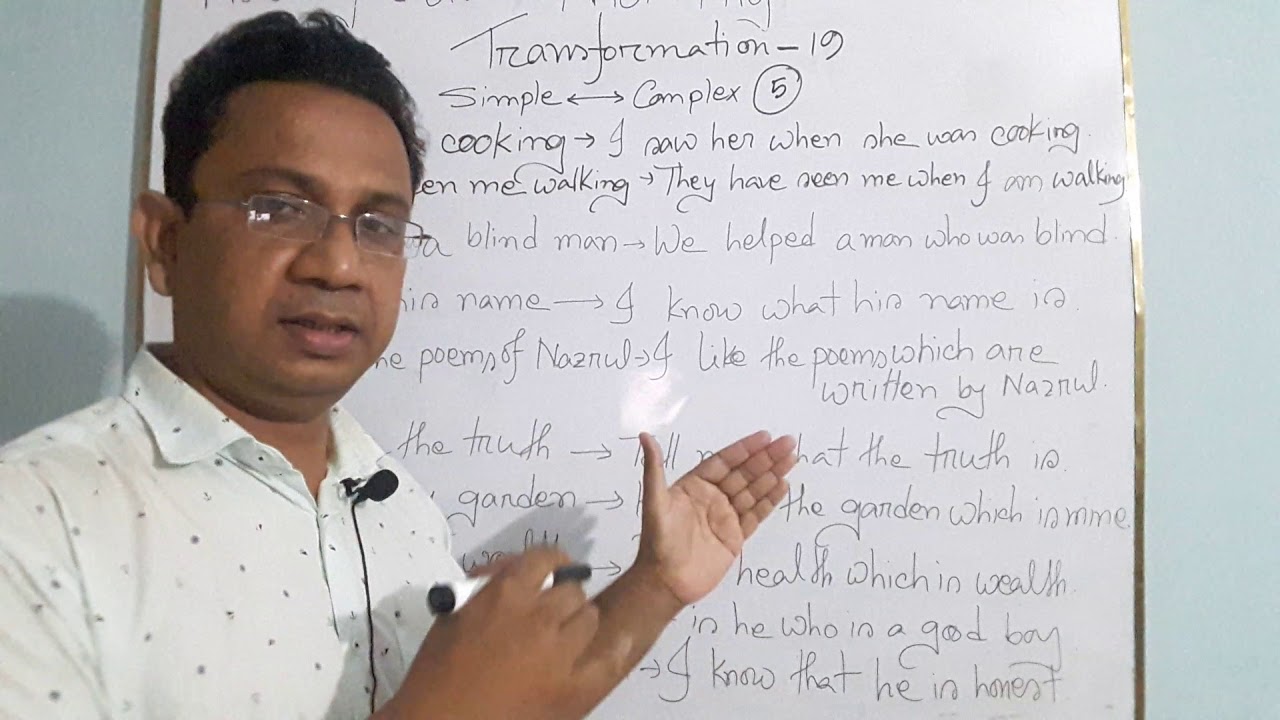 Transformation - 19
Simple ↔ Complex 5
cooking → I saw her when she was cooking.
me walking → They have seen me when I am walking
a blind man → We helped a man who was blind.
his name → I know what his name is.
poems of Nazrul → I like the poems which are
written by Nazrul.
the truth → Tell what the truth is.
garden → the garden which is mine.
→ health which is wealth.
is he who is a good boy
→ I know that he is honest